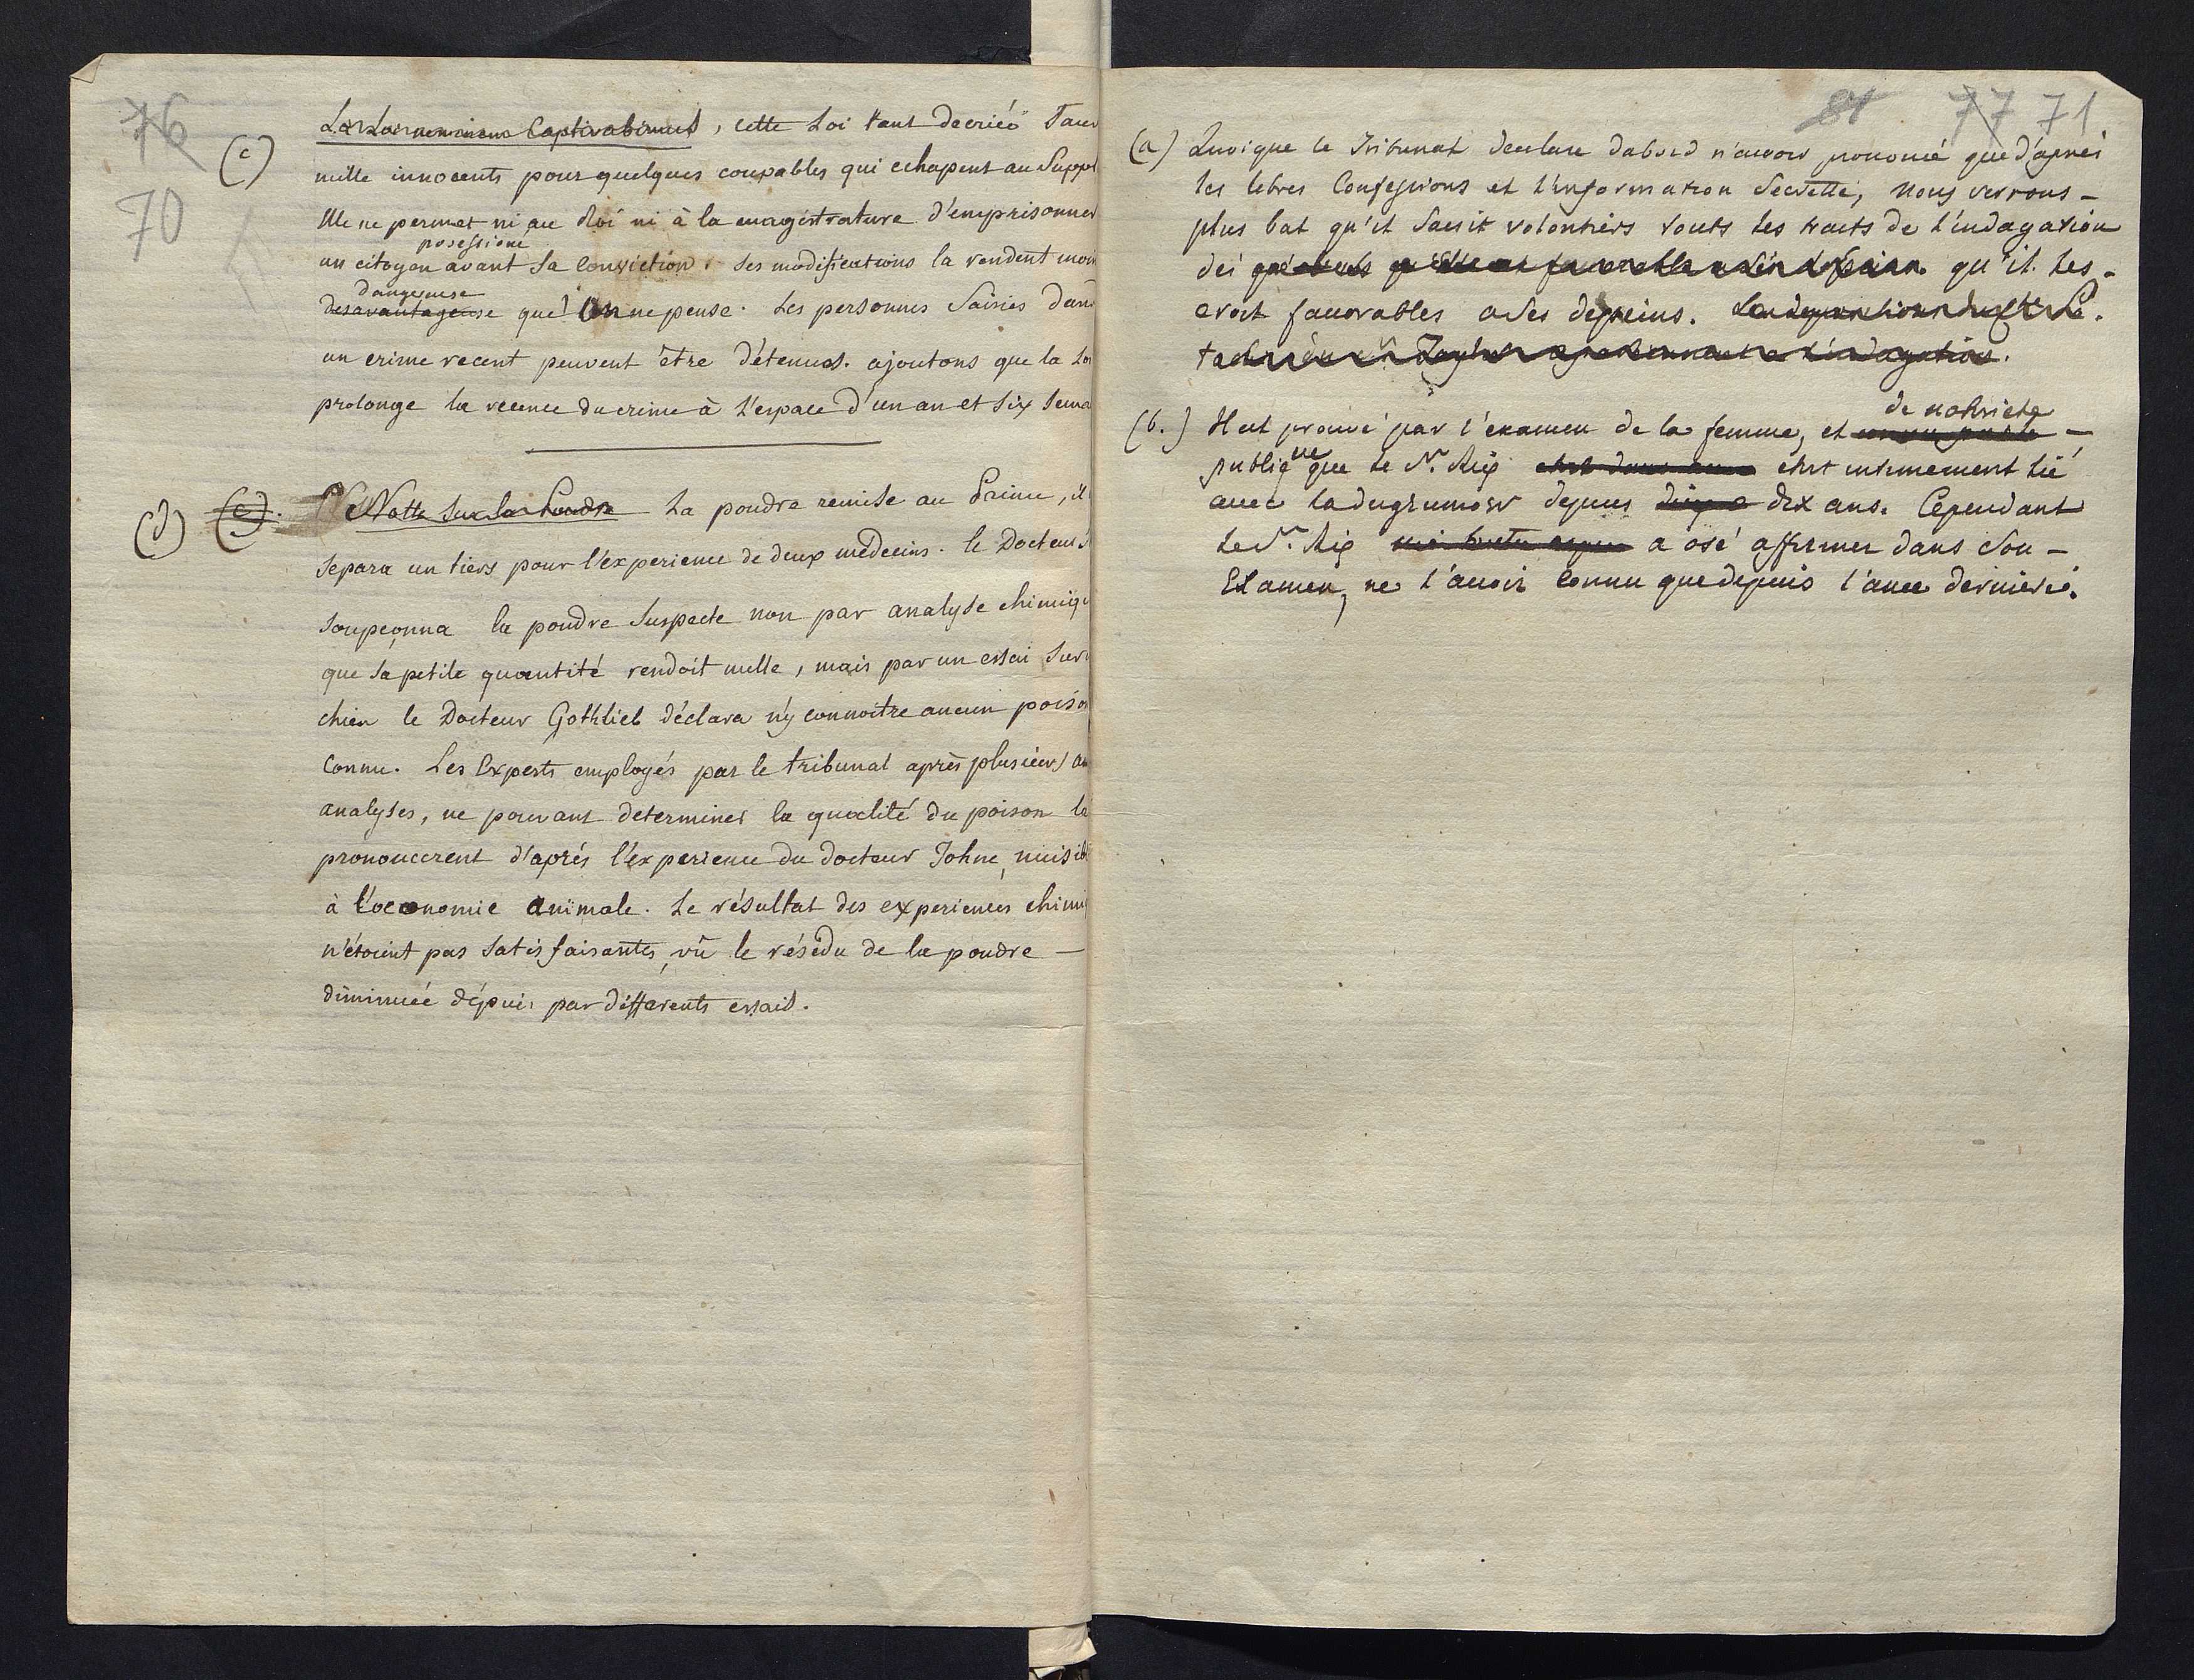 76
70
(c) La Loi neminem Captivabimus, cette Loi tant decriée Sauve
mille innocents pour quelques coupables qui echapent au Suppl
Elle ne permet ni au Roi ni à la magistrature d'emprisonner
posessioné
un citoyen avant Sa Conviction. Ses modifications la rendent moin
dangereuse
desavantageuse que l'On ne pense. Les personnes Saisies dans
un crime recent peuvent être détenues. ajoutons que la Loi
prolonge la recence du crime à l'espace d'un an et Six Sema
(d) (c). Notte Sur la Poudre La poudre remise au Prince, il
Separa un tiers pour l'experience de deux médecins. le Docteur
Soupçonna la poudre Suspecte non par analyse chimiq
que Sa petite quantité rendoit nulle, mais par un essai Sur
chien le Docteur Gothlieb déclara n'y connoitre aucun poison
Connu. Les Experts employés par le tribunal après plusieurs
analyses, ne pouvant determiner la qualité du poison la
prononcerent d'aprés l'experience du docteur Johne, nuisib
à l'oeconomie animale. Le résultat des experiences chimi
n'étoient pas Satisfaisantes, vû le résidu de la poudre —
diminuée dépuis par differents essais.
81 77 71
(a) Quoique le Tribunat declare dabord n'avoir prononcé que d'aprés
les libres Confessions et l'information Secrette, nous verrons —
plus bas qu'il Saisit volontiers touts les traits de l'indagation
dei qu'il les
croit favorables a Ses desseins.
l'indagation.
de notorieté
(b.) Il est prouvé par l'examen de la femme, et —
publique que le Sr. Rix etoit intimement lié
avec la dugrumow depuis dix ans. Cependant
le Sr. Rix a osé affirmer dans Son —
Examen, ne l'avoir Connu que depuis l'anée derniere.